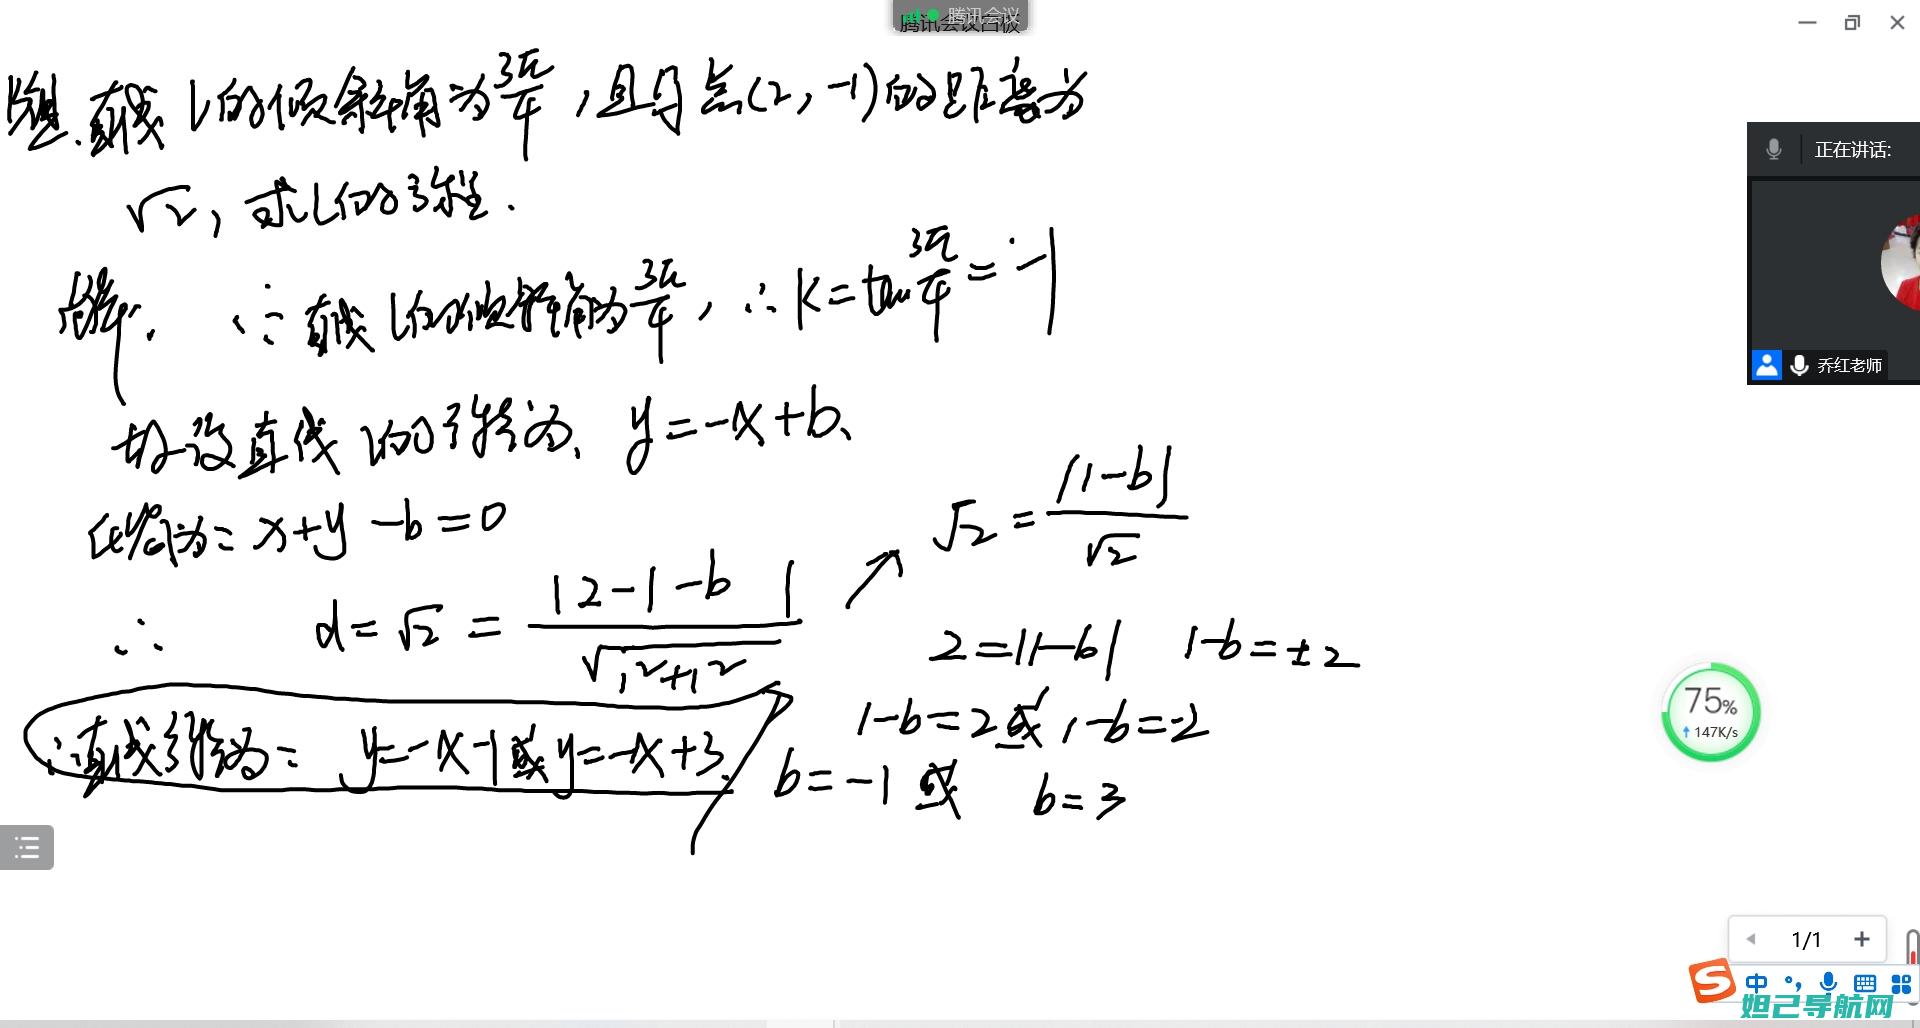 腾讯会议
腾讯会议白板
题.直线l的倾斜角为3π/4,且与点(2,-1)的距离为
√2,求l的方程.
正在讲话:
解. ∵直线l的倾斜角为3π/4,∴k=tan3π/4=-1
乔红老师
故设直线l的方程为、y=-x+b、
化简为:x+y-b=0
√2=|1-b|/√2
∴ d=√2=|2-1-b|/√1²+1²
2=|1-b| 1-b=±2
1-b=2或1-b=-2
75%
147K/s
∴直线方程为:y=-x-1或y=-x+3.
b=-1或 b=3
1/1
中
妲己导航网